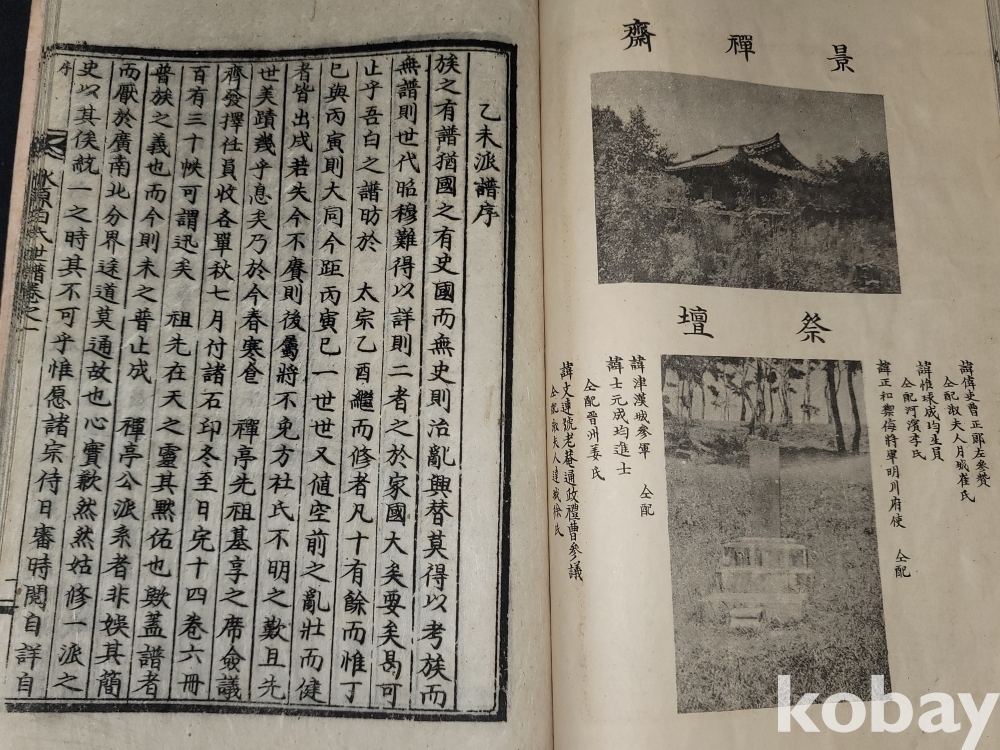 景禪齋
祭壇
諱偉吏曹正郎左參贊
仝配淑夫人月城崔氏
諱惟球成均生員
仝配河濱李氏
諱正和禦侮將軍明川府使 仝配
諱津漢城參軍 仝配
諱士元成均進士
仝配晉州姜氏
諱文達號老菴通政禮曹參議
仝配淑夫人達城徐氏
乙未派譜序
族之有譜猶國之有史國而無史則治亂興替莫得以考族而
無譜則世代昭穆難得以詳則二者之於家國大矣要矣曷可
止乎吾白之譜昉於 太宗乙酉繼而修者凡十有餘而惟丁
巳與丙寅則大同今距丙寅已一世世又値空前之亂壯而健
者皆出戍若失今不賡則後屬將不免方社氏不明之歎且先
世美蹟幾乎息矣乃於今春寒食 禪亭先祖墓享之席僉議
齊發擇任員收各單秋七月付諸石印冬至日完十四卷六冊
百有三十帙可謂迅矣 祖先在天之靈其黙佑也歟蓋譜者
普族之義也而今則未之普止成 禪亭公派系者非娛其簡
而厭於廣南北分界途道莫通故也心實歉然然姑修一派之
史以其俟統一之時其不可乎惟愿諸宗待日審時閱自詳自
序
水原白氏世譜卷之一
一
kobay